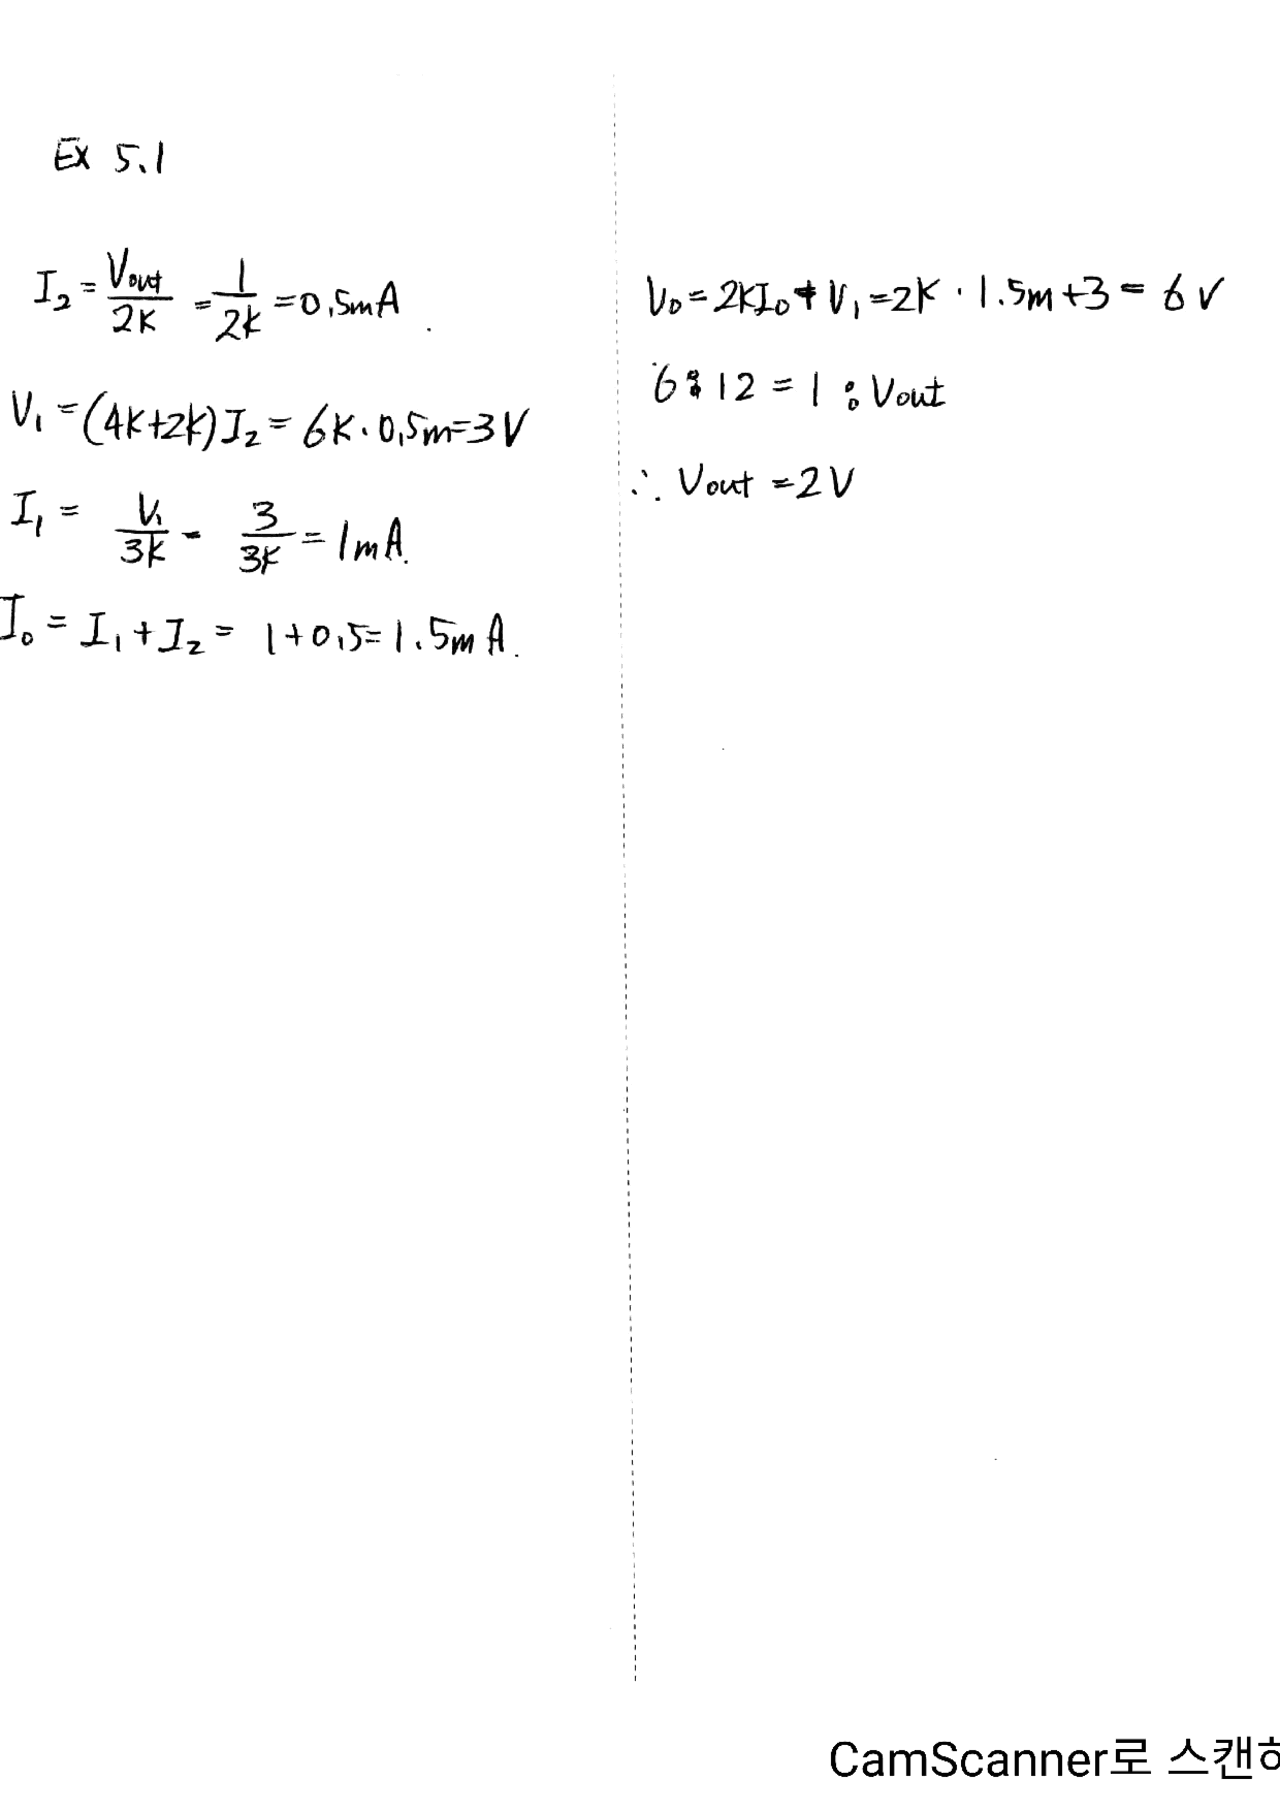 Ex 5.1
I₂ = Vout/2K = 1/2K = 0.5mA.
V₁ = (4K+2K)I₂ = 6K · 0.5m = 3V
I₁ = V₁/3K = 3/3K = 1mA.
I₀ = I₁ + I₂ = 1+0.5 = 1.5mA.
V₀ = 2KI₀ + V₁ = 2K · 1.5m + 3 = 6V
6 : 12 = 1 : Vout
∴ Vout = 2V
CamScanner로 스캔하